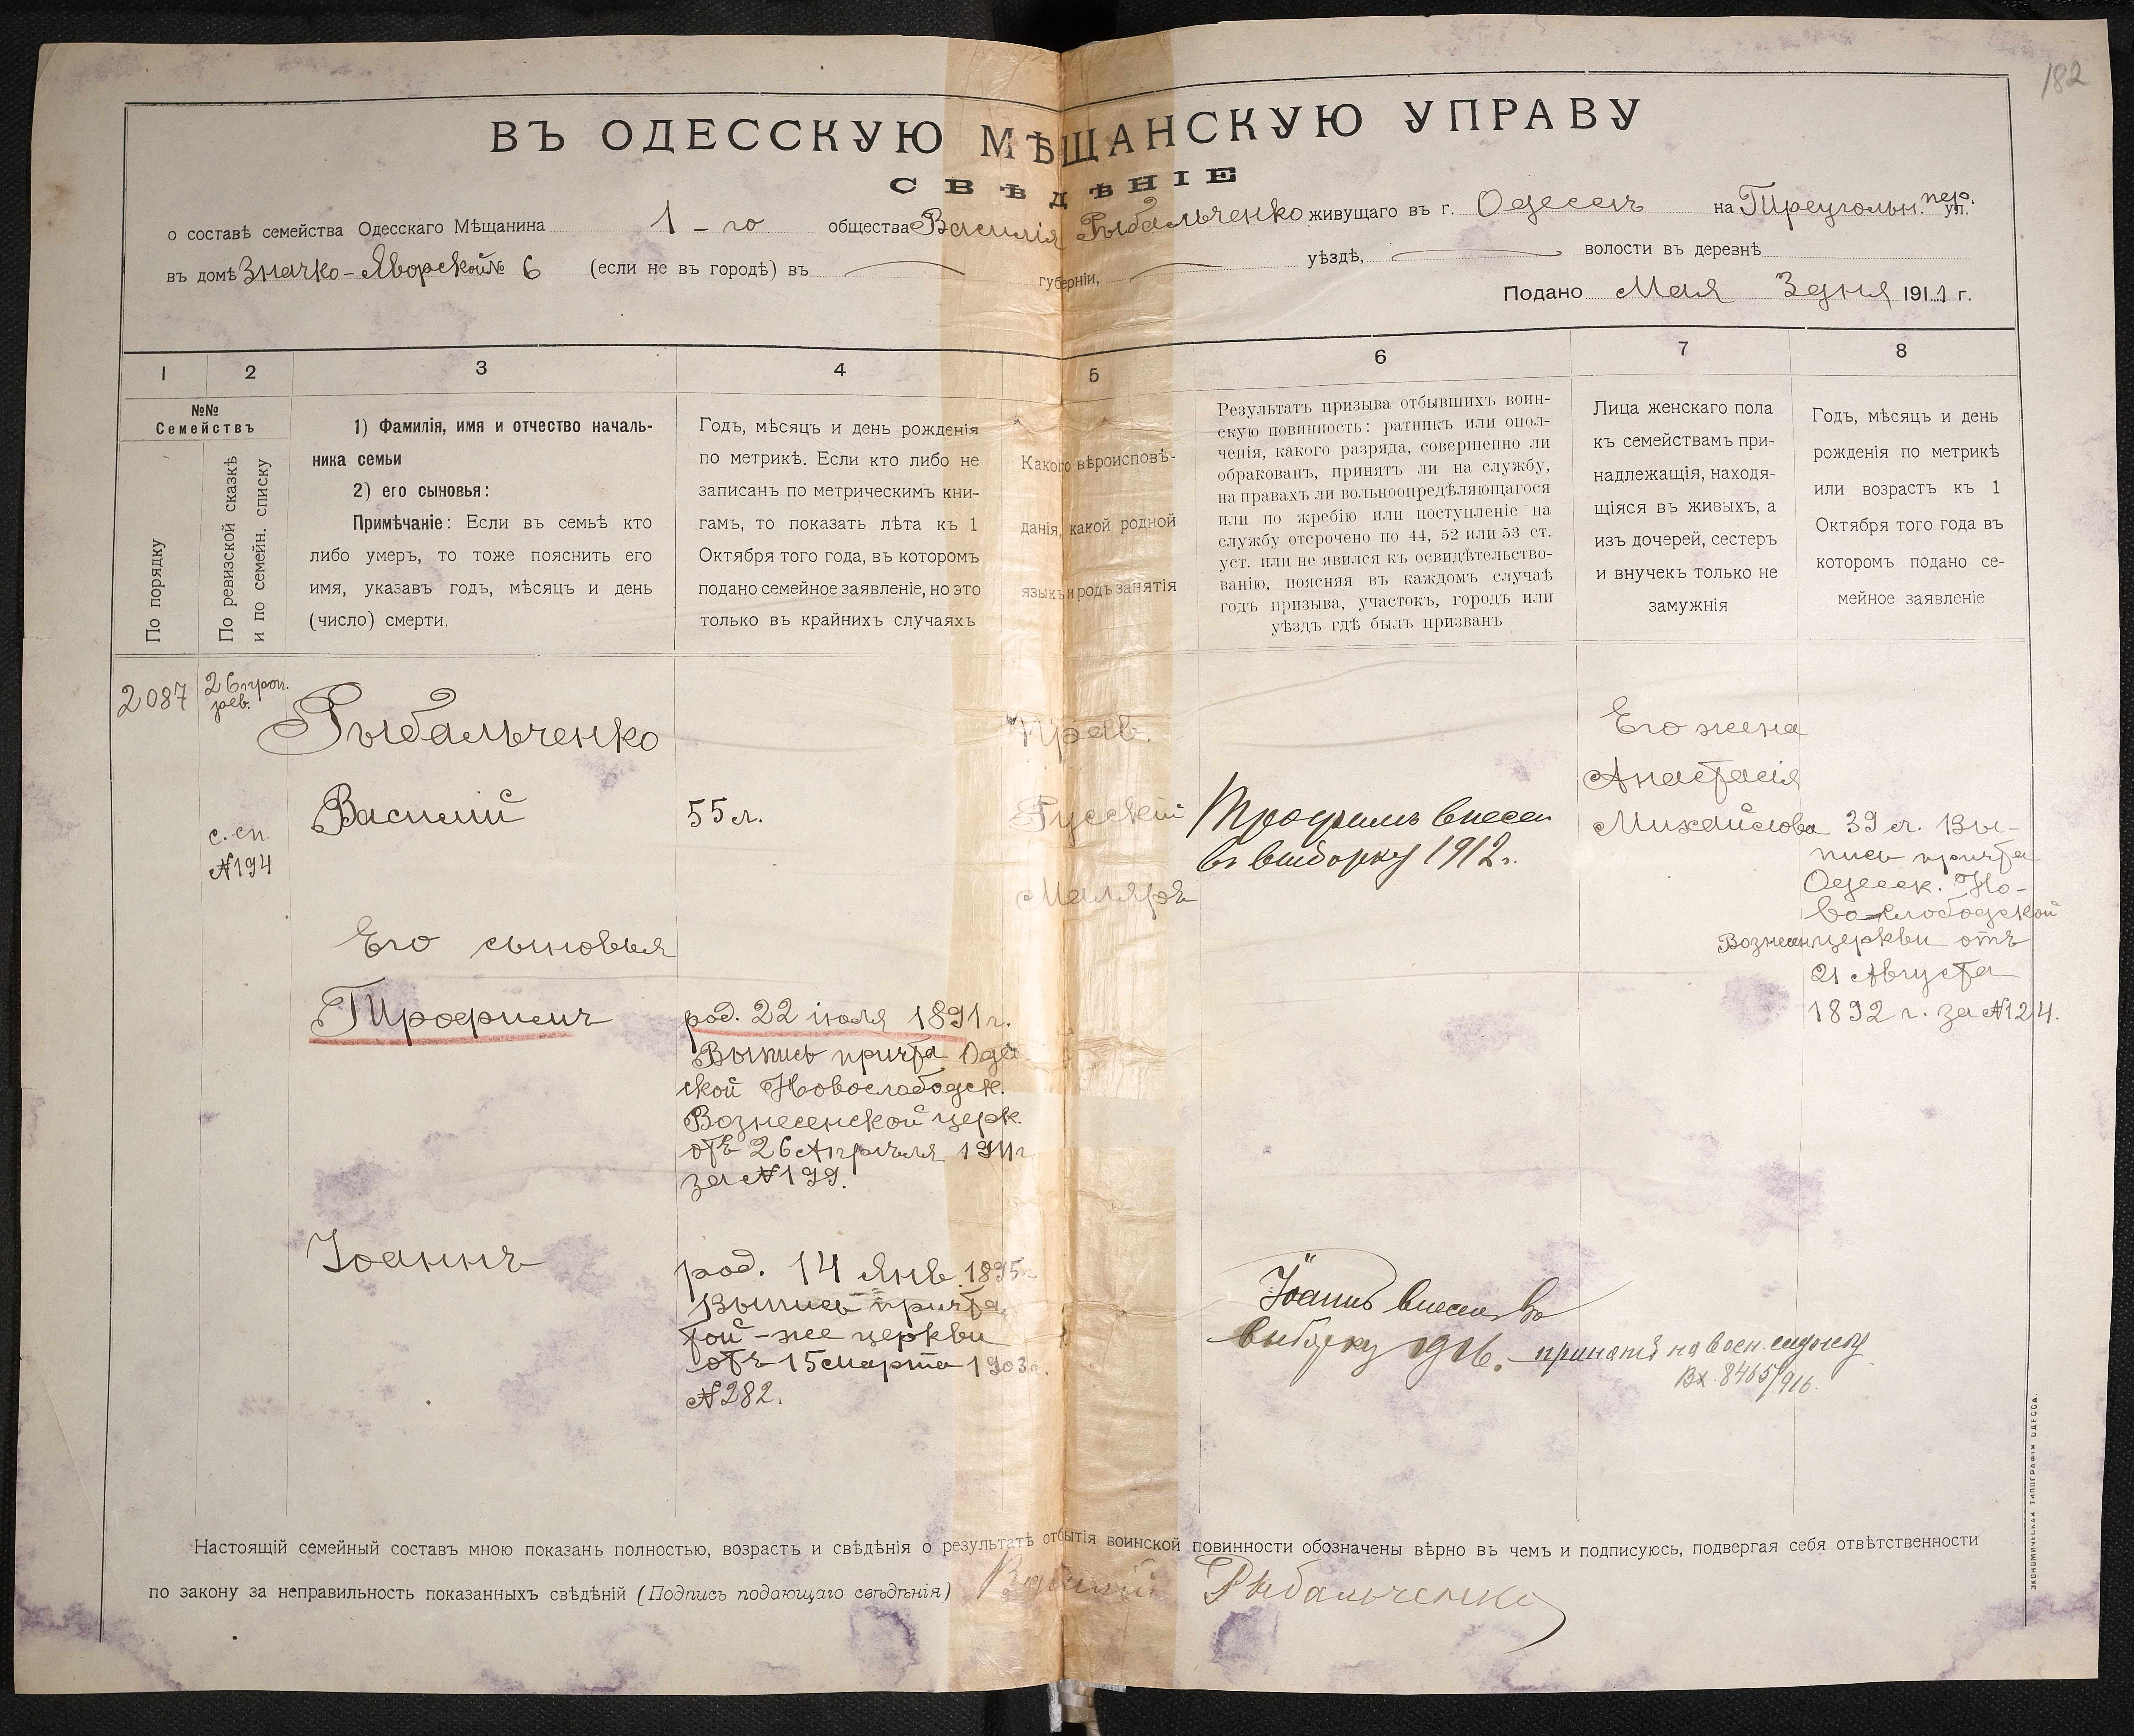 182
ВЪ ОДЕССКУЮ МѢЩАНСКУЮ УПРАВУ
СВѢДѢНІЕ
о составѣ семейства Одесскаго Мѣщанина 1-го общества Василія Рыбальченко живущаго въ г. Одессѣ на Треугольн. пер. ул.
въ домѣ Значко-Яворской № 6 (если не въ городѣ) въ губерніи, уѣздѣ, волости въ деревнѣ
Подано Мая 3 дня 1911 г.
1 2 3 4 5 6 7 8
№№
Семействъ
По порядку
По ревизской сказкѣ
и по семейн. списку
1) Фамилія, имя и отчество началь-
ника семьи
2) его сыновья:
Примѣчаніе: Если въ семьѣ кто
либо умеръ, то тоже пояснить его
имя, указавъ годъ, мѣсяцъ и день
(число) смерти.
Годъ, мѣсяцъ и день рожденія
по метрикѣ. Если кто либо не
записанъ по метрическимъ кни-
гамъ, то показать лѣта къ 1
Октября того года, въ которомъ
подано семейное заявленіе, но это
только въ крайнихъ случаяхъ
Какого вѣроисповѣ-
данія, какой родной
языкъ и родъ занятія
Результатъ призыва отбывшихъ воин-
скую повинность: ратникъ или опол-
ченія, какого разряда, совершенно ли
обракованъ, принятъ ли на службу,
на правахъ ли вольноопредѣляющагося
или по жребію или поступленіе на
службу отсрочено по 44, 52 или 53 ст.
уст. или не явился къ освидѣтельство-
ванію, поясняя въ каждомъ случаѣ
годъ призыва, участокъ, городъ или
уѣздъ гдѣ былъ призванъ
Лица женскаго пола
къ семействамъ при-
надлежащія, находя-
щіяся въ живыхъ, а
изъ дочерей, сестеръ
и внучекъ только не
замужнія
Годъ, мѣсяцъ и день
рожденія по метрикѣ
или возрастъ къ 1
Октября того года въ
которомъ подано се-
мейное заявленіе
2087
рев.
с. сп.
№194
Рыбальченко
Василій
55 л.
Прав.
Русскій
Маляръ
Трофимъ внесен
въ выборку 1912 г.
Его жена
Анастасія
Михайлова
39 л. Вы-
пись причта
Одесск. Но-
вослободской
Вознесен церкви отъ
21 Августа
1892 г. за №124.
Его сыновья
Трофимъ
род. 22 іюля 1891 г.
Выпись причта Одес
ской Новослободск.
Вознесенской церк.
отъ 26 Апрѣля 1911 г
за №199.
Іоаннъ
род. 14 Янв. 1895 г.
Выпись причта
той-же церкви
отъ 15 Марта 1903 г.
№282.
Іоаннъ внесен въ
выборку 1916. принятъ на воен. службу
Вх. 8465/916.
Настоящій семейный составъ мною показанъ полностью, возрастъ и свѣдѣнія о результатѣ отбытія воинской повинности обозначены вѣрно въ чемъ и подписуюсь, подвергая себя отвѣтственности
по закону за неправильность показанныхъ свѣдѣній (Подпись подающаго свѣдѣнія) Василій Рыбальченко
ЭКОНОМИЧЕСКАЯ ТИПОГРАФІЯ ОДЕССА.